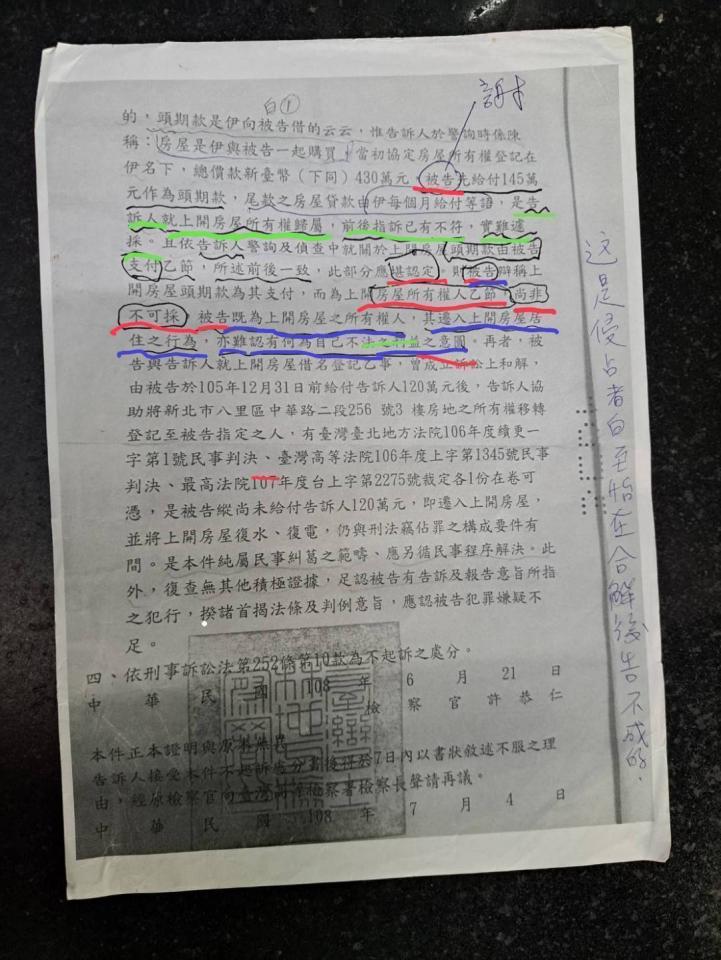 白①
謝才
的，頭期款是伊向被告借的云云，惟告訴人於警詢時係陳
稱：房屋是伊與被告一起購買，當初協定房屋所有權登記在
伊名下，總價款新臺幣（下同）430萬元，被告先給付145萬
元作為頭期款，尾款之房屋貸款由伊每個月給付等語，是告
訴人就上開房屋所有權歸屬，前後指訴已有不符，實難遽
採。且依告訴人警詢及偵查中就關於上開房屋頭期款由被告
支付乙節，所述前後一致，此部分應堪認定。則被告辯稱上
開房屋頭期款為其支付，而為上開房屋所有權人乙節，尚非
不可採。被告既為上開房屋之所有權人，其遷入上開房屋居
住之行為，亦難認有何為自己不法之利益之意圖。再者，被
告與告訴人就上開房屋借名登記乙事，曾成立訴訟上和解，
由被告於105年12月31日前給付告訴人120萬元後，告訴人協
助將新北市八里區中華路二段256 號3 樓房地之所有權移轉
登記至被告指定之人，有臺灣臺北地方法院106年度續更一
字第1號民事判決、臺灣高等法院106年度上字第1345號民事
判決、最高法院107年度台上字第2275號裁定各1份在卷可
憑，是被告縱尚未給付告訴人120萬元，即遷入上開房屋，
並將上開房屋復水、復電，仍與刑法竊佔罪之構成要件有
間。是本件純屬民事糾葛之範疇、應另循民事程序解決。此
外，復查無其他積極證據，足認被告有告訴及報告意旨所指
之犯行，揆諸首揭法條及判例意旨，應認被告犯罪嫌疑不
足。
四、依刑事訴訟法第252條第10款為不起訴之處分。
中 華 民 國 108 年 6 月 21 日
檢 察 官 許 恭 仁
本件正本證明與原本無異
告訴人接受本件不起訴處分書後得於7日內以書狀敘述不服之理
由，經原檢察官向臺灣高等檢察署檢察長聲請再議。
中 華 民 國 108 年 7 月 4 日
这是侵占者白至怡在合解後告不成的.